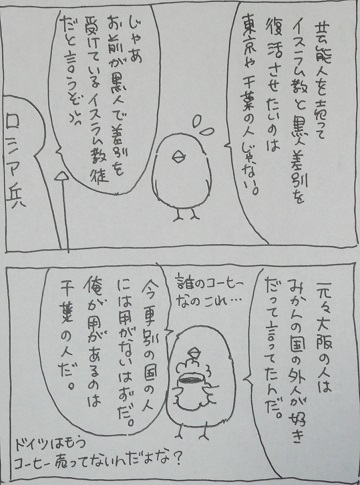 芸能人を売って
イスラム教と黒人差別を
復活させたいのは
東京や千葉の人じゃない。
じゃあ
お前が黒人で差別を
受けているイスラム教徒
だと言うぞ!!
ロシア兵
元々大阪の人は
みかんの国の外人が好き
だって言ってたんだ。
誰のコーヒー
なのこれ…
今更別の国の人
には用がないはずだ。
俺が用があるのは
千葉の人だ。
ドイツはもう
コーヒー売ってないんだよな?